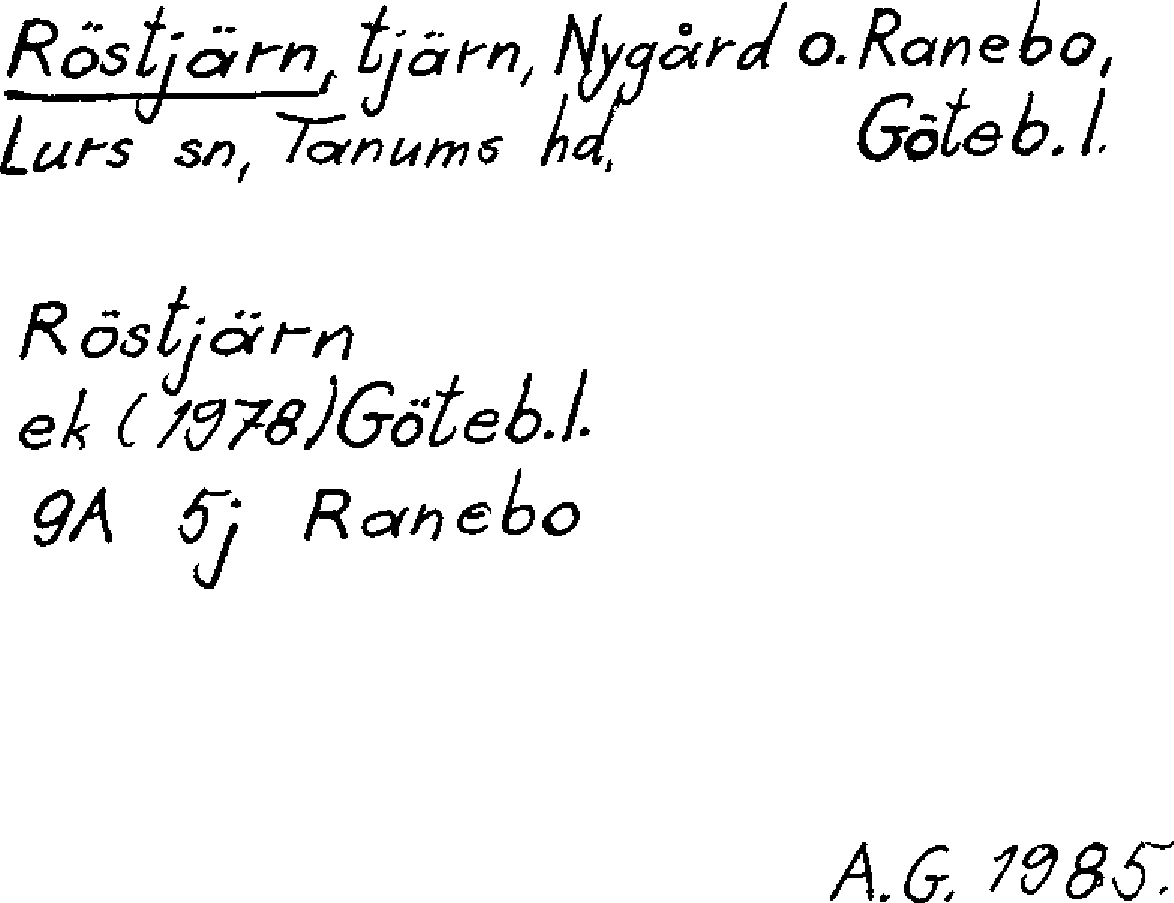 Röstjärn, tjärn, Nygård o. Ranebo,
Lurs sn, Tanums hd, Göteb. l.
Röstjärn
ek (1978) Göteb. l.
9A 5j Ranebo
A. G. 1985.